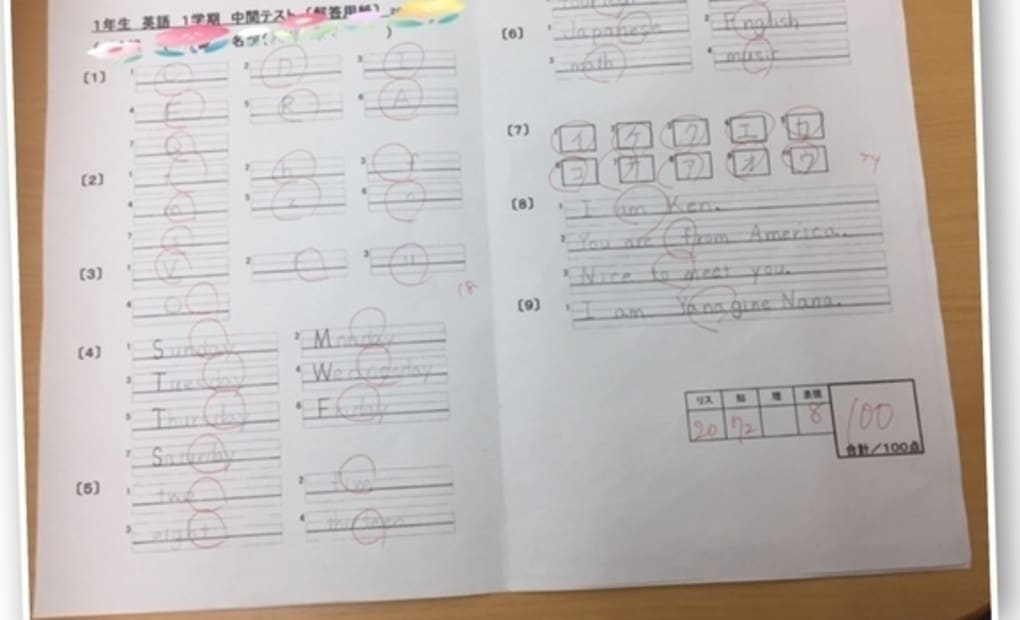 1年生 英語 1学期 中間テスト (解答用紙)
(1)
1
2
3 I
4 E
5 R
6 A
7 Q
(2)
1
2 h
3 r
4 m
5 z
6 n
7
(3)
1 V
2
3 u
4
18
(4)
1 Sunday
2
3 Tuesday
4
5 Thursday
6 Friday
7 Saturday
(5)
1 two
2
3 eight
4 thirteen
(6)
1
2 English
3 math
4 music
(7)
イ ケ ク エ カ
コ オ ア オ ウ
(8)
1 I am Ken.
2 You are from America.
3 Nice to meet you.
(9)
1 I am Yanagine Nana.
リス 知 理 表現
20 72 8 100
合計/100点